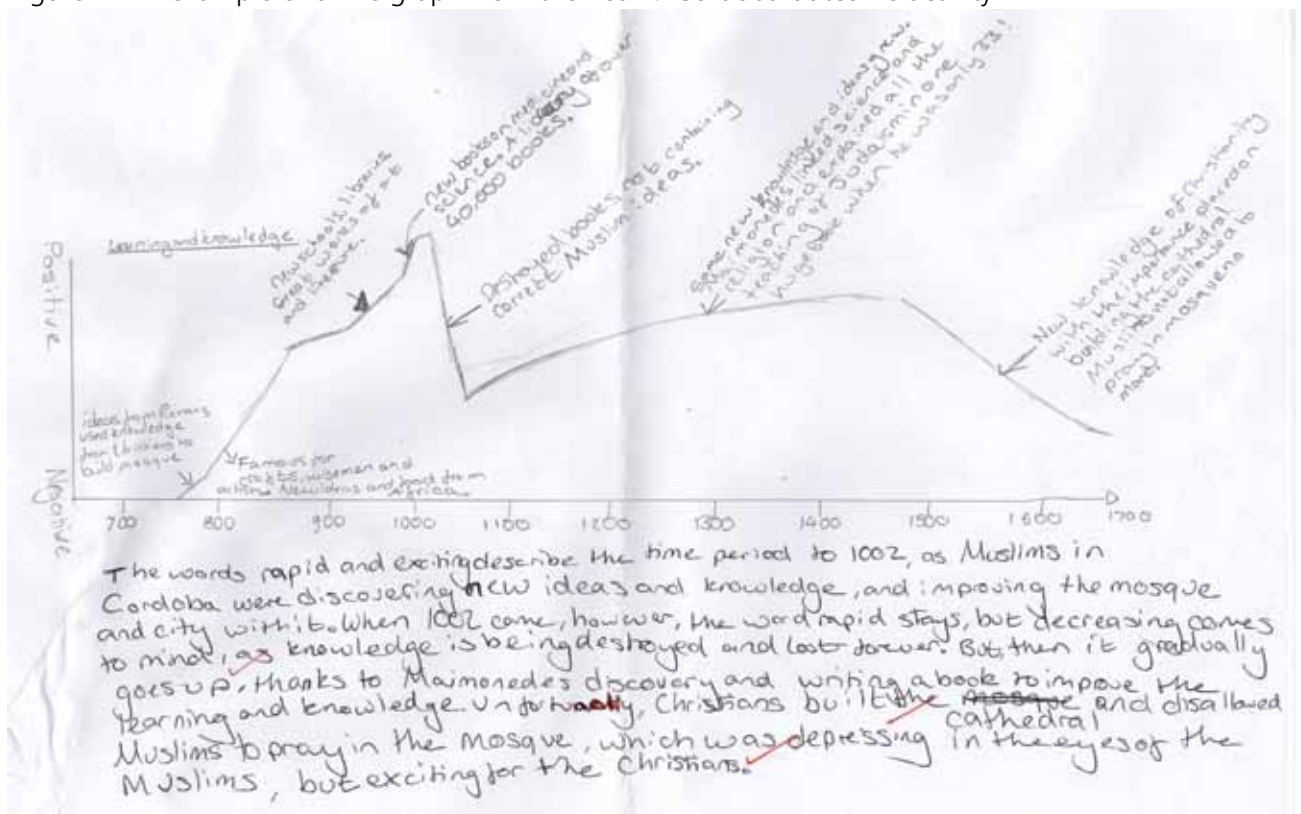 Positive
Negative
Learning and knowledge
ideas from Romans
used knowledge
from Christians to
build mosque
Famous for
crafts, wisemen and
New ideas and food from
Africa.
New schools libraries
great works of art
and literature.
New books on medicine and
science. A library of over
40,000 books.
Destroyed books not containing
correct Muslim ideas.
Some new knowledge and ideas grew.
Maimonedes linked science and
religion and explained all the
teaching of Judaism in one
huge book when he was only 33!
New knowledge of Christianity
with the importance placed on
building the cathedral
Muslims not allowed to
pray in mosque no
more?
700 800 900 1000 1100 1200 1300 1400 1500 1600 1700
The words rapid and exciting describe the time period to 1002, as Muslims in
Cordoba were discovering new ideas and knowledge, and improving the mosque
and city with it. When 1002 came, however, the word rapid stays, but decreasing comes
to mind, as knowledge is being destroyed and lost forever. But, then it gradually
goes up, thanks to Maimonedes discovery and writing a book to impove the
learning and knowledge. Unfortunatly, Christians built the cathedral and disallowed
Muslims to pray in the mosque, which was depressing in the eyes of the
Muslims, but exciting for the Christians.